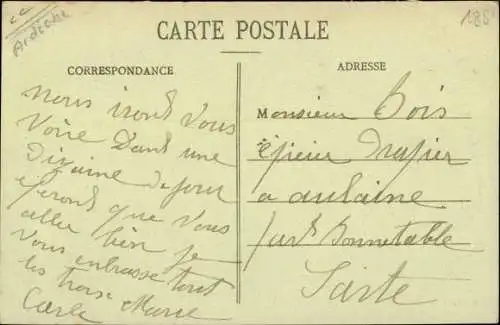 cc
Ardèche
188
CARTE POSTALE
CORRESPONDANCE
nous irons vous
Voire Dant une
Dizaine de jour
esperont que Vous
aller bien je
Vous enbrasse tout
les trois Marie
Carle
ADRESSE
Monsieur Bois
épicier Drapier
a aulaine
par Bonnetable
Sarte